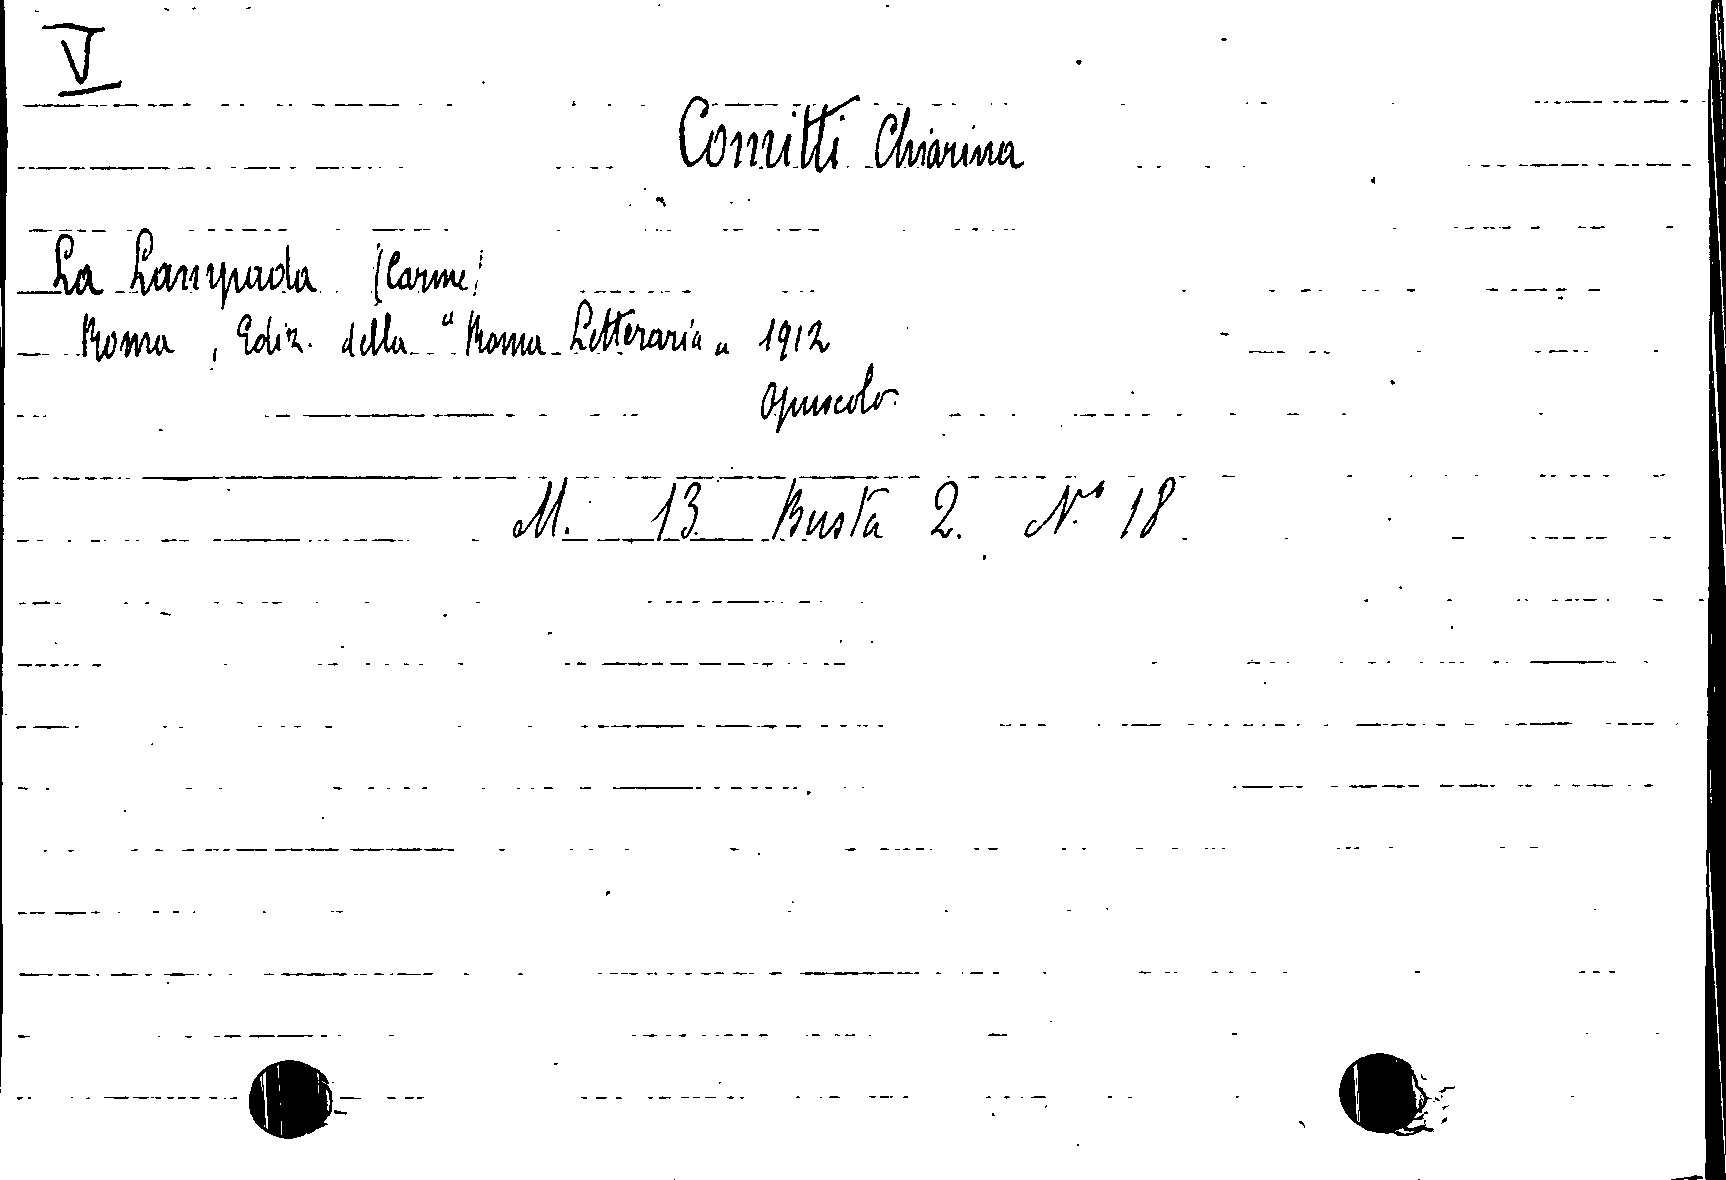 V
Comitti Chiarina
La Lampada (Carme)
Roma, Ediz. della "Roma Letteraria" 1912
Opuscolo
M. 13 Busta 2. N.° 18